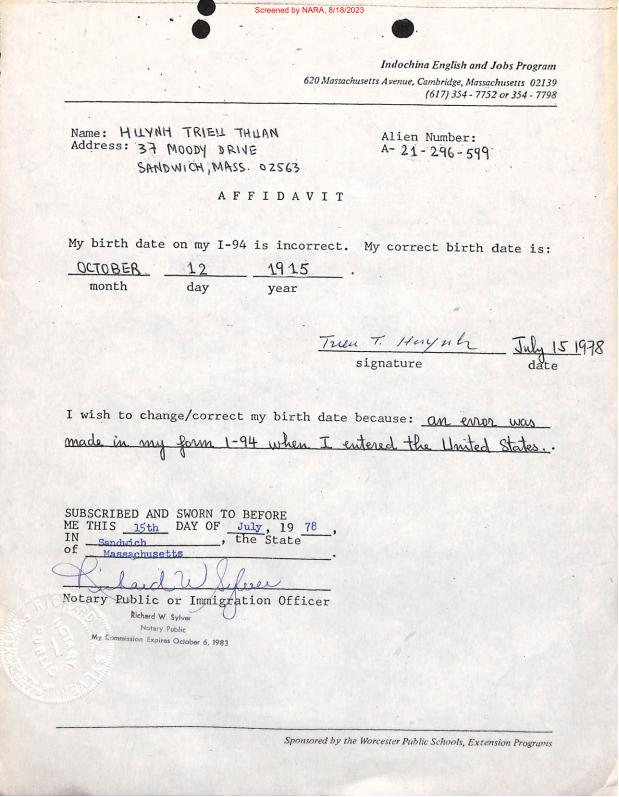 Screened by NARA, 8/18/2023
Indochina English and Jobs Program
620 Massachusetts Avenue, Cambridge, Massachusetts 02139
(617) 354 - 7752 or 354 - 7798
Name: HUYNH TRIEU THUAN
Address: 37 MOODY DRIVE
SANDWICH, MASS. 02563
Alien Number:
A- 21-296-599
AFFIDAVIT
My birth date on my I-94 is incorrect. My correct birth date is:
OCTOBER 12 1915 .
month day year
Trieu T. Huynh July 15 1978
signature date
I wish to change/correct my birth date because: an error was
made in my form I-94 when I entered the United States. .
SUBSCRIBED AND SWORN TO BEFORE
ME THIS 15th DAY OF July, 19 78,
IN Sandwich, the State
of Massachusetts.
Richard W Sylver
Notary Public or Immigration Officer
Richard W. Sylver
Notary Public
My Commission Expires October 6, 1983
Sponsored by the Worcester Public Schools, Extension Programs